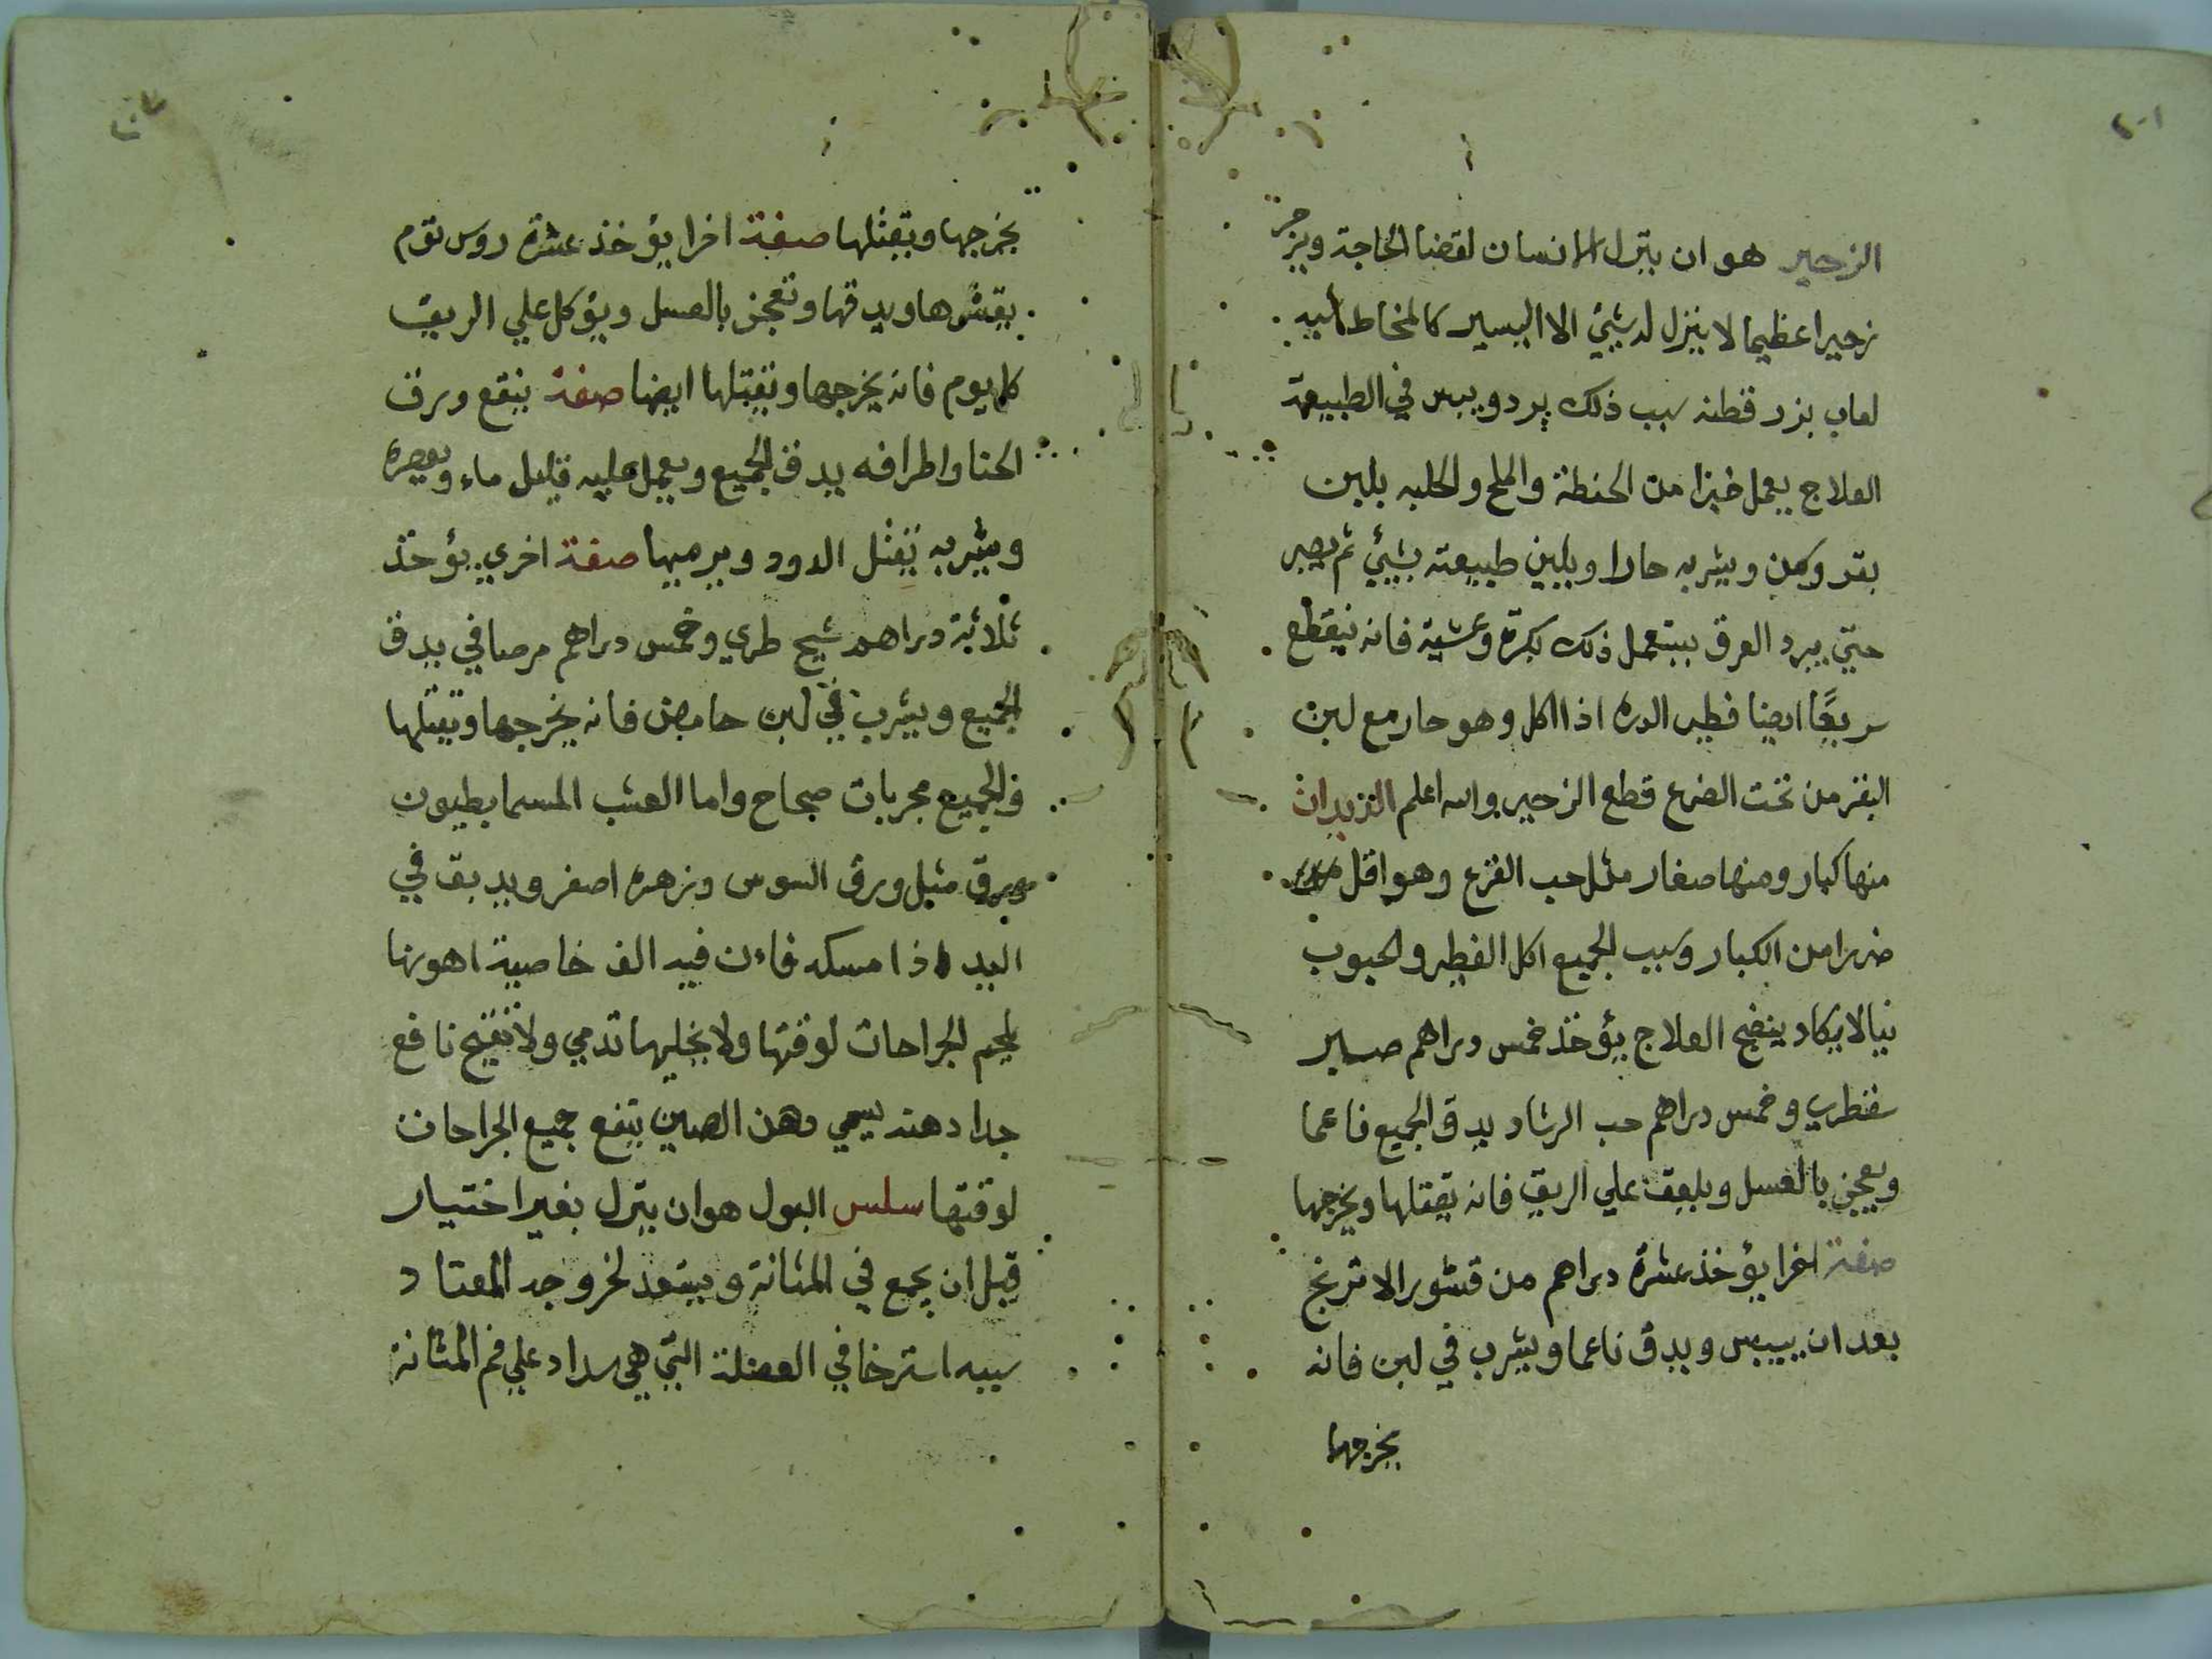 الزحير هو ان ينزل الانسان لقضا الحاجة ويزحر
زحيرا عظيما لا ينزل له شيئ الا اليسير كالمخاط
لعاب بزر قطنه سبب ذلك برد ويبس في الطبيعة
العلاج يعمل خبزا من الحنطة والملح والحلبه بلبن
بقر وكمن ويشربه حارا ويلين طبيعته بشيئ ثم يصبر
حتي يبرد العرق يستعمل ذلك بكرة وعشية فانه ينقطع
سريعًا ايضا فطير الدره اذا اكل وهو حار مع لبن
البقر من تحت الضرع قطع الزحير والله اعلم الديدان
منها كبار ومنها صغار مثل حب القرع وهو اقل
ضررا من الكبار وسبب الجميع اكل الفطير والحبوب
نيا لا يكاد ينضج العلاج يؤخذ خمس دراهم صبر
سقطري وخمس دراهم حب الرشاد يدق الجميع ناعما
ويعجن بالعسل ويلعق علي الريق فانه يقتلها ويخرجها
صفة اخرا يؤخذ عشرة دراهم من قشور الاترنج
بعد ان ييبس ويدق ناعما ويشرب في لبن فانه
يخرجها
يخرجها ويقتلها صفة اخرا يؤخذ عشرة روس توم
يقشرها ويدقها وتعجن بالعسل ويؤكل علي الريق
كل يوم فانه يخرجها وتقتلها ايضا صفة ينقع ورق
الحنا واطرافه يدق الجميع ويعمل عليه قليل ماء ويعصره
ويشربه يقتل الدود ويرميها صفة اخري يؤخذ
ثلاثة دراهم شيح طري وخمس دراهم مرصافي يدق
الجميع ويشرب في لبن حامض فانه يخرجها وتقتلها
والجميع مجربات صحاح واما العشب المسما بطيون
مورق مثل ورق السوس وزهره اصفر ويدبق في
اليد اذا مسكه فاءن فيه الف خاصية اهونها
يلحم الجراحات لوقتها ولا يخليها تدمي ولا تقيح نافع
جدا دهنه يسمي دهن الصين ينفع جميع الجراحات
لوقتها سلس البول هو ان ينزل بغير اختيار
قبل ان يجمع في المثانة ويستعد لخروجه المعتاد
سببه استرخا في العضلة التي هي سداد علي فم المثانة